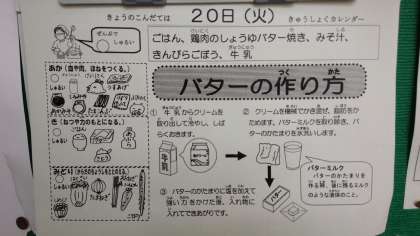 きょうのこんだては
20日（火）
きゅうしょくカレンダー
ぜんぶで
しゅるい
ごはん、鶏肉のしょうゆバター焼き、みそ汁、
きんぴらごぼう、牛乳
あか（血や肉、ほねをつくる。）
しゅるい
き（ねつや力のもとになる。）
しゅるい
みどり（からだのちょうしをととのえる。）
しゅるい
バターの作り方
① 牛乳からクリームを
取り出して冷やし、しば
らくおきます。
② クリームを機械でかき混ぜ、脂肪をか
ためます。バターミルクを取り除き、バ
ターのかたまりを水洗いします。
牛乳
バターミルク
バターのかたまりを
作る際、後に残るミルク
のような液体のこと。
③ バターのかたまりに塩を加えて
強い力をかけた後、入れ物に
入れてできあがりです。
バター